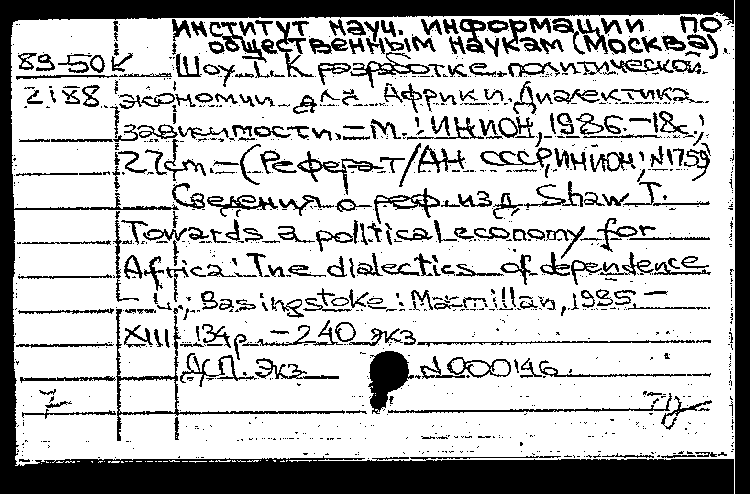 Институт науч. информации по
общественным наукам (Москва).
89-50К Шоу Т. К разработке политической
2188 экономии для Африки. Диалектика
зависимости. - М.: ИНИОН, 1986. - 18с.;
27cm. - (Реферат/АН СССР, ИНИОН; N1759)
Сведения о реф. изд. Shaw T.
Towards a political economy for
Africa: The dialectics of dependence
- L.; Basingstoke: Macmillan, 1985. -
XIII 134p. - 240 экз.
ДСП. Экз N000146.
7